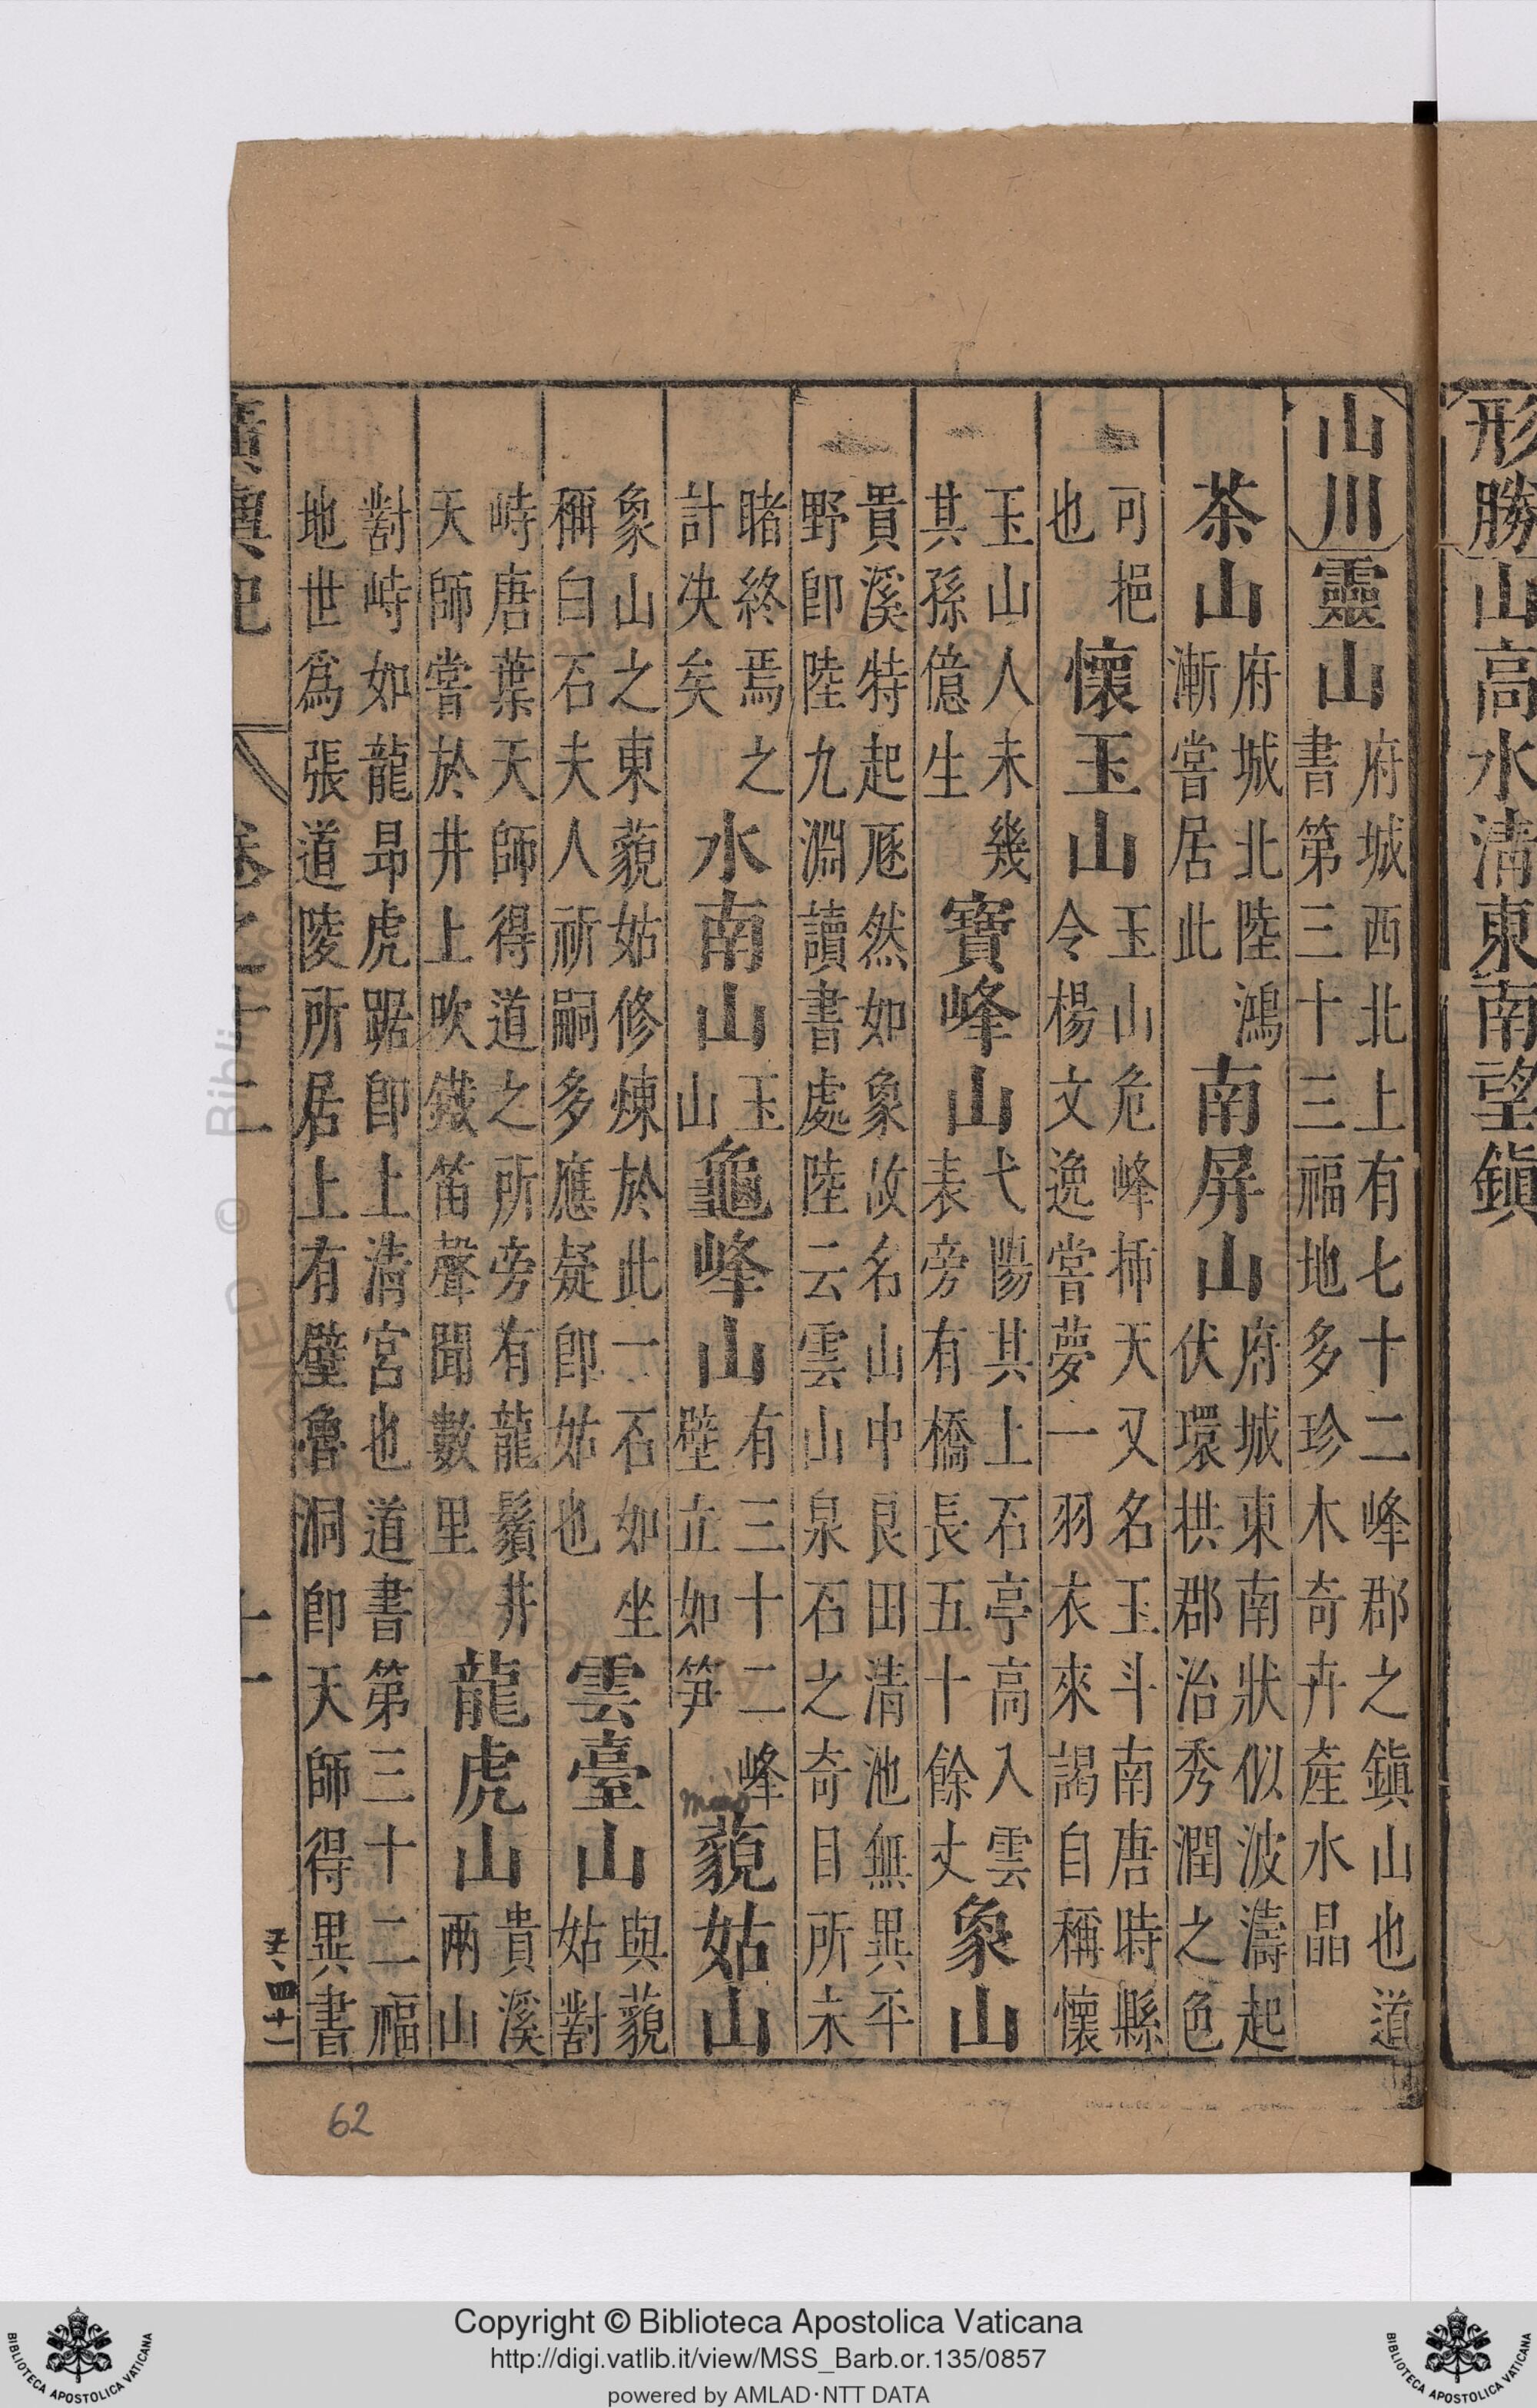 形勝山高水清東南望鎮
山川靈山府城西北上有七十二峰郡之鎮山也道
書第三十三福地多珍木奇卉產水晶
茶山府城北陸鴻
漸嘗居此
南屏山府城東南狀似波濤起
伏環拱郡治秀潤之色
可挹
也
懷玉山玉山危峰揷天又名玉斗南唐時縣
令楊文逸嘗夢一羽衣來謁自稱懷
玉山人未幾
其孫億生
寶峰山弋陽其上石亭高入雲
表旁有橋長五十餘丈
象山
貴溪特起然如象故名山中良田清池無異平
野卽陸九淵讀書處陸云雲山泉石之奇目所未
睹終焉之
計决矣
水南山玉
山
龜峰山有三十二峰
壁立如笋
藐姑山
象山之東藐姑修煉於此一石如坐
稱曰石夫人祈嗣多應疑卽姑也
雲臺山與藐
姑對
峙唐葉天師得道之所旁有龍鬚井
天師嘗於井上吹鐵笛聲聞數里
龍虎山貴溪
兩山
對峙如龍昻虎踞卽上清宮也道書第三十二福
地世爲張道陵所居上有壁魯洞卽天師得異書
廣輿記 卷之十二 十一
62
Copyright © Biblioteca Apostolica Vaticana
http://digi.vatlib.it/view/MSS_Barb.or.135/0857
powered by AMLAD·NTT DATA
BIBLIOTECA APOSTOLICA VATICANA
BIBLIOTECA APOSTOLICA VATICANA